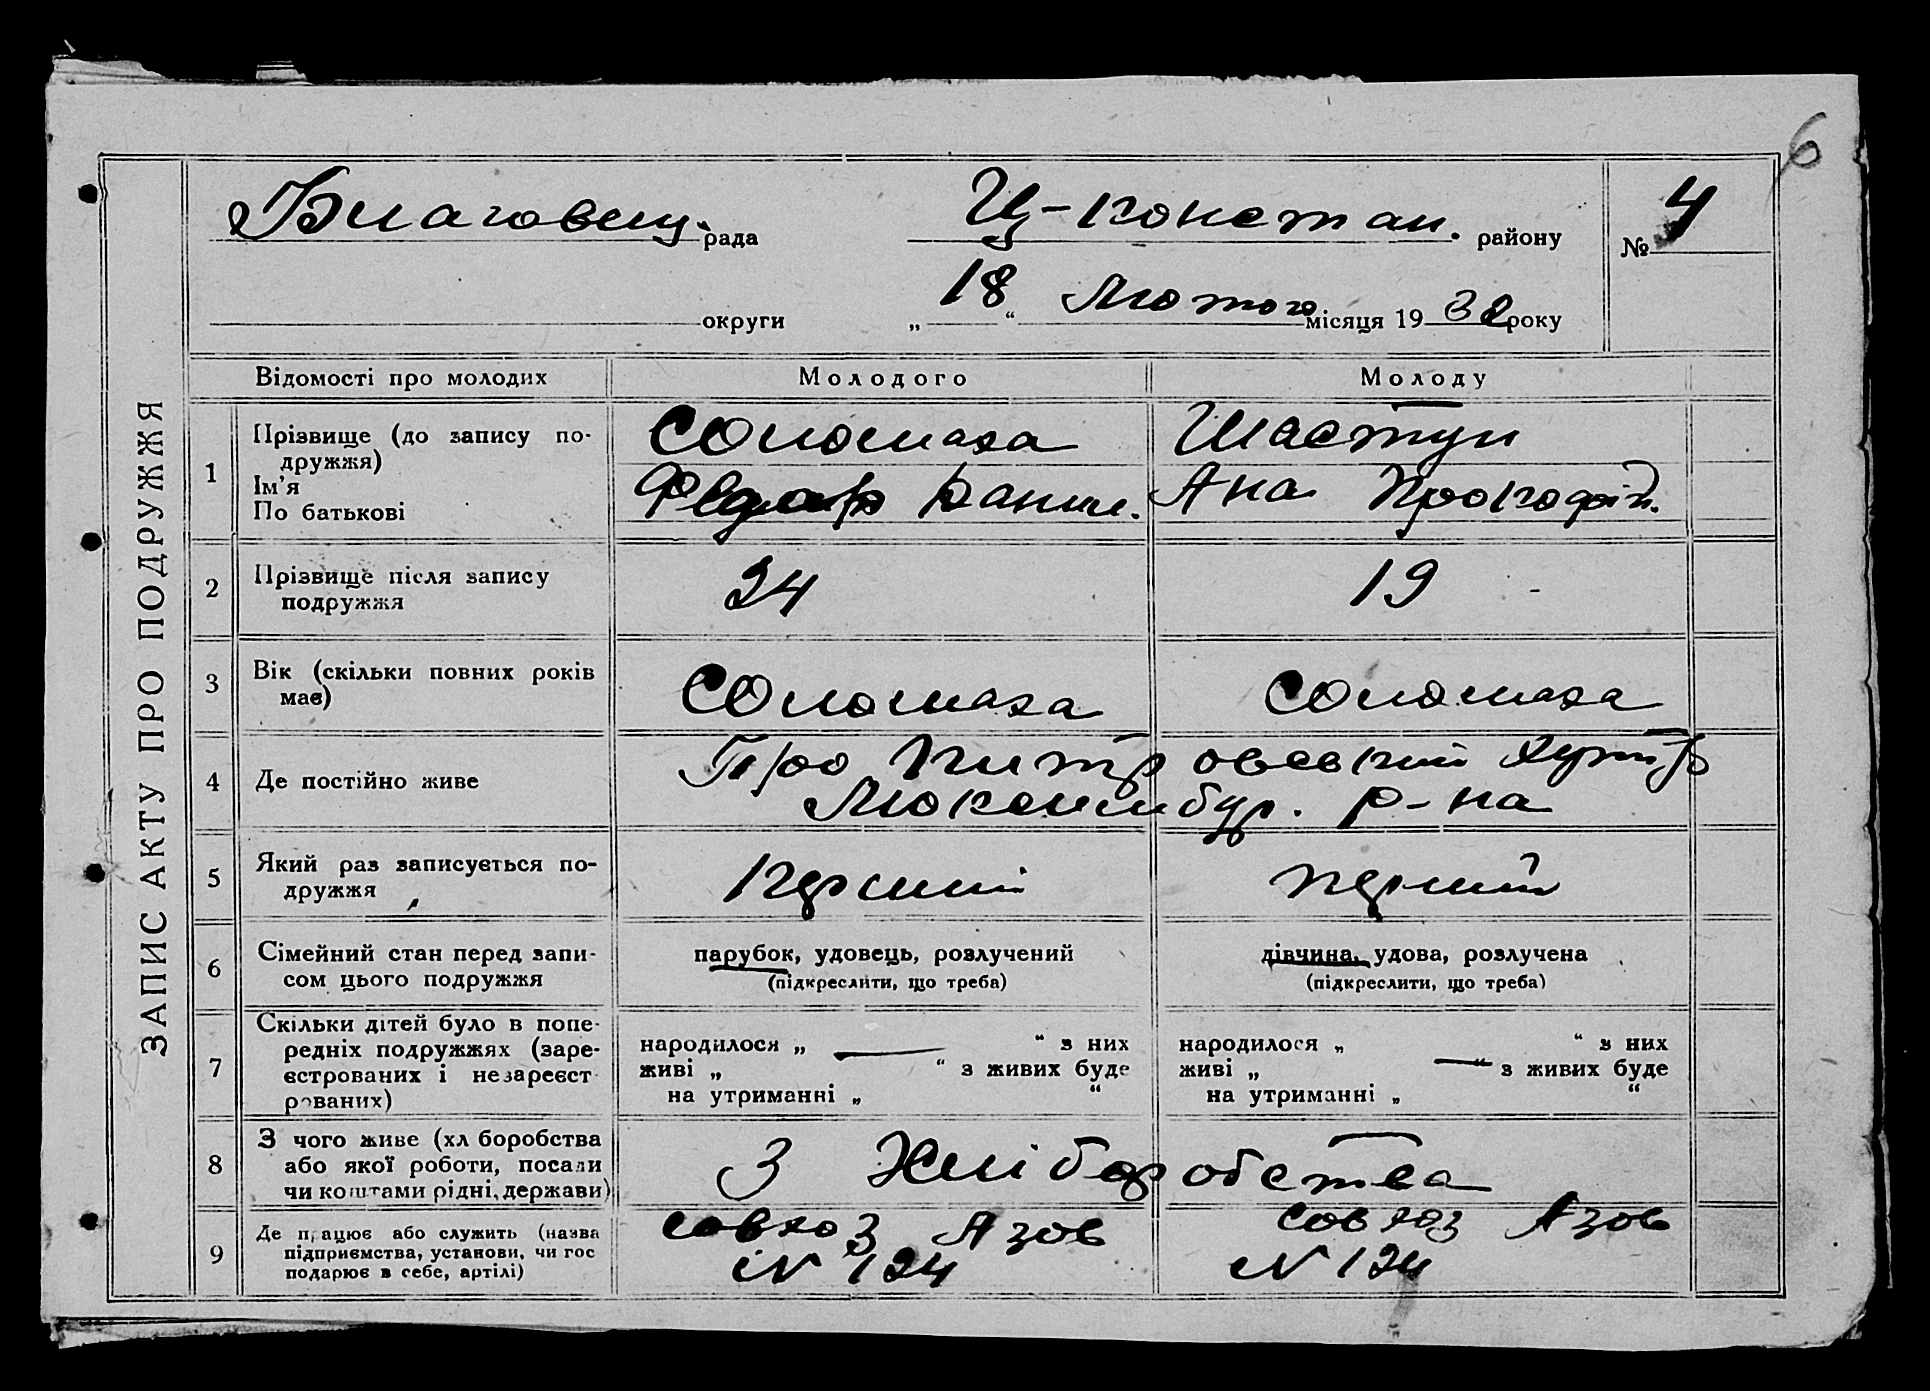 6
ЗАПИС АКТУ ПРО ПОДРУЖЖЯ
Благовещ. рада Ц-констан. району № 4
округи „ 18 “ Лютого місяця 19 32 року
Відомості про молодих Молодого Молоду
1 Прізвище (до запису по-
дружжя)
Ім’я
По батькові
Соломаха Шастун
Федор Данил. Ана Прокофій.
2 Прізвище після запису
подружжя
24 19
3 Вік (скільки повних років
має)
Соломаха Соломаха
4 Де постійно живе
хутір
Люксембур. р-на
5 Який раз записується по-
дружжя
перший перший
6 Сімейний стан перед запи-
сом цього подружжя
парубок, удовець, розлучений дівчина, удова, розлучена
(підкреслити, що треба) (підкреслити, що треба)
7 Скільки дітей було в попе-
редніх подружжях (заре-
єстрованих і незареєст
рованих)
народилося „ “ з них народилося „ “ з них
живі „ “ з живих буде живі „ “ з живих буде
на утриманні „ “ на утриманні „ “
8 З чого живе (хл боробства
або якої роботи, посади
чи коштами рідні, держави)
З Хліборобства
9 Де працює або служить (назва
підприємства, установи, чи гос
подарює в себе, артілі)
совхоз Азов совхоз Азов
N 124 N 124